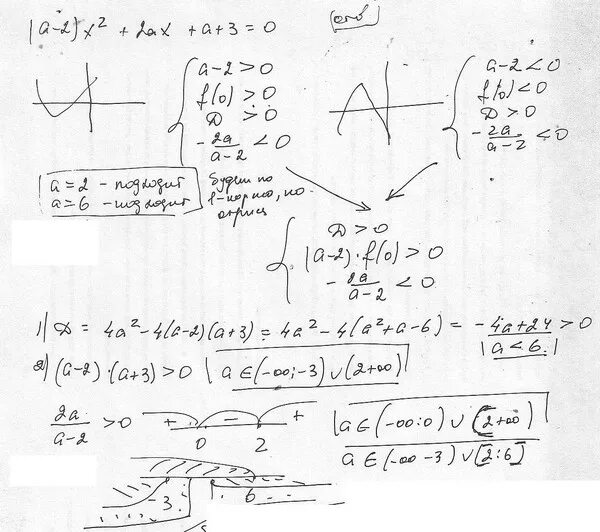 (a-2)x² + 2ax + a+3 = 0
a-2 > 0
f(0) > 0
D > 0
-2a/(a-2) < 0
a-2 < 0
f(0) < 0
D > 0
-2a/(a-2) < 0
a = 2 - подходит
a = 6 - подходит
будет по
1-корню, но
D > 0
(a-2)·f(0) > 0
-2a/(a-2) < 0
1) D = 4a²-4(a-2)(a+3) = 4a²-4(a²+a-6) = -4a+24 > 0
a < 6.
2) (a-2)·(a+3) > 0 a ∈ (-∞; -3) ∪ (2 +∞)
2a/(a-2) > 0 + - + a ∈ (-∞; 0) ∪ [2 +∞)
0 2
a ∈ (-∞ -3) ∪ [2; 6]
-3 6